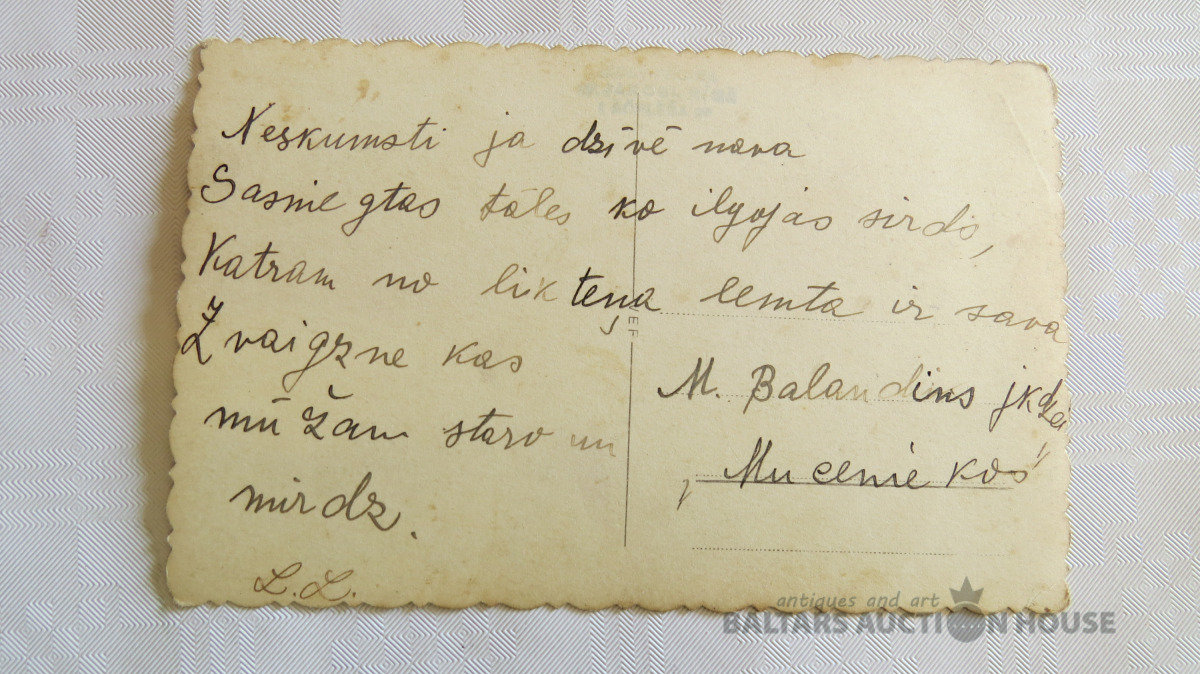 Neskumsti ja dzīvē nava
Sasniegtas tāles ko ilgojas sirds,
Katram no likteņa lemta ir sava
Zvaigzne kas
mūžam staro un
mirdz.
L.L.
VEF
M. Balandins
„Mucenie kos”
antiques and art
BALTARS AUCTION HOUSE